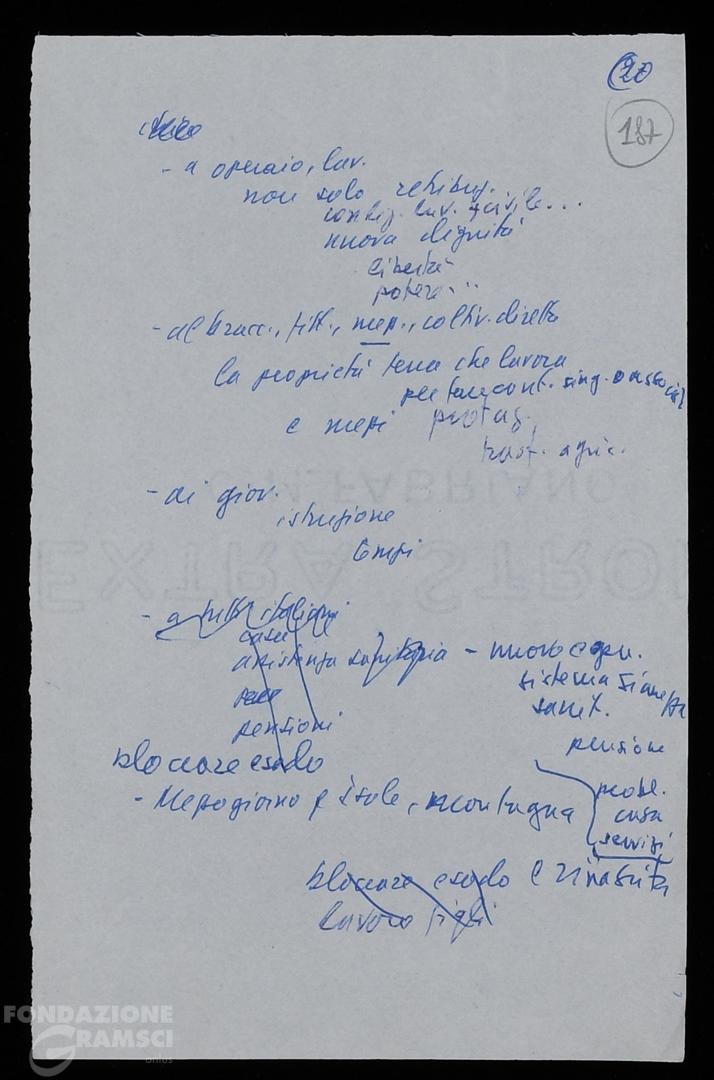 20
187
- a operaio, lav.
non solo retribuz.
condiz. lav. + civile...
nuova dignità
libertà
potere...
- al bracc., fitt., mezz., coltiv. diretto
la proprietà terra che lavora
per far cont. sing. o associaz.
e mezzi protag.
trasf. agric.
- ai giov.
istruzione
- a tutti italiani
casa
assistenza sanitaria - nuovo e gen.
sistema sicurezza
sanit.
pensioni
pensione
bloccare esodo
- Mezzogiorno e isole, montagna
probl.
casa
servizi
bloccare esodo e rinascita
lavoro figli
C.M. FABRIANO
EXTRA STRONG
FONDAZIONE
GRAMSCI
onlus